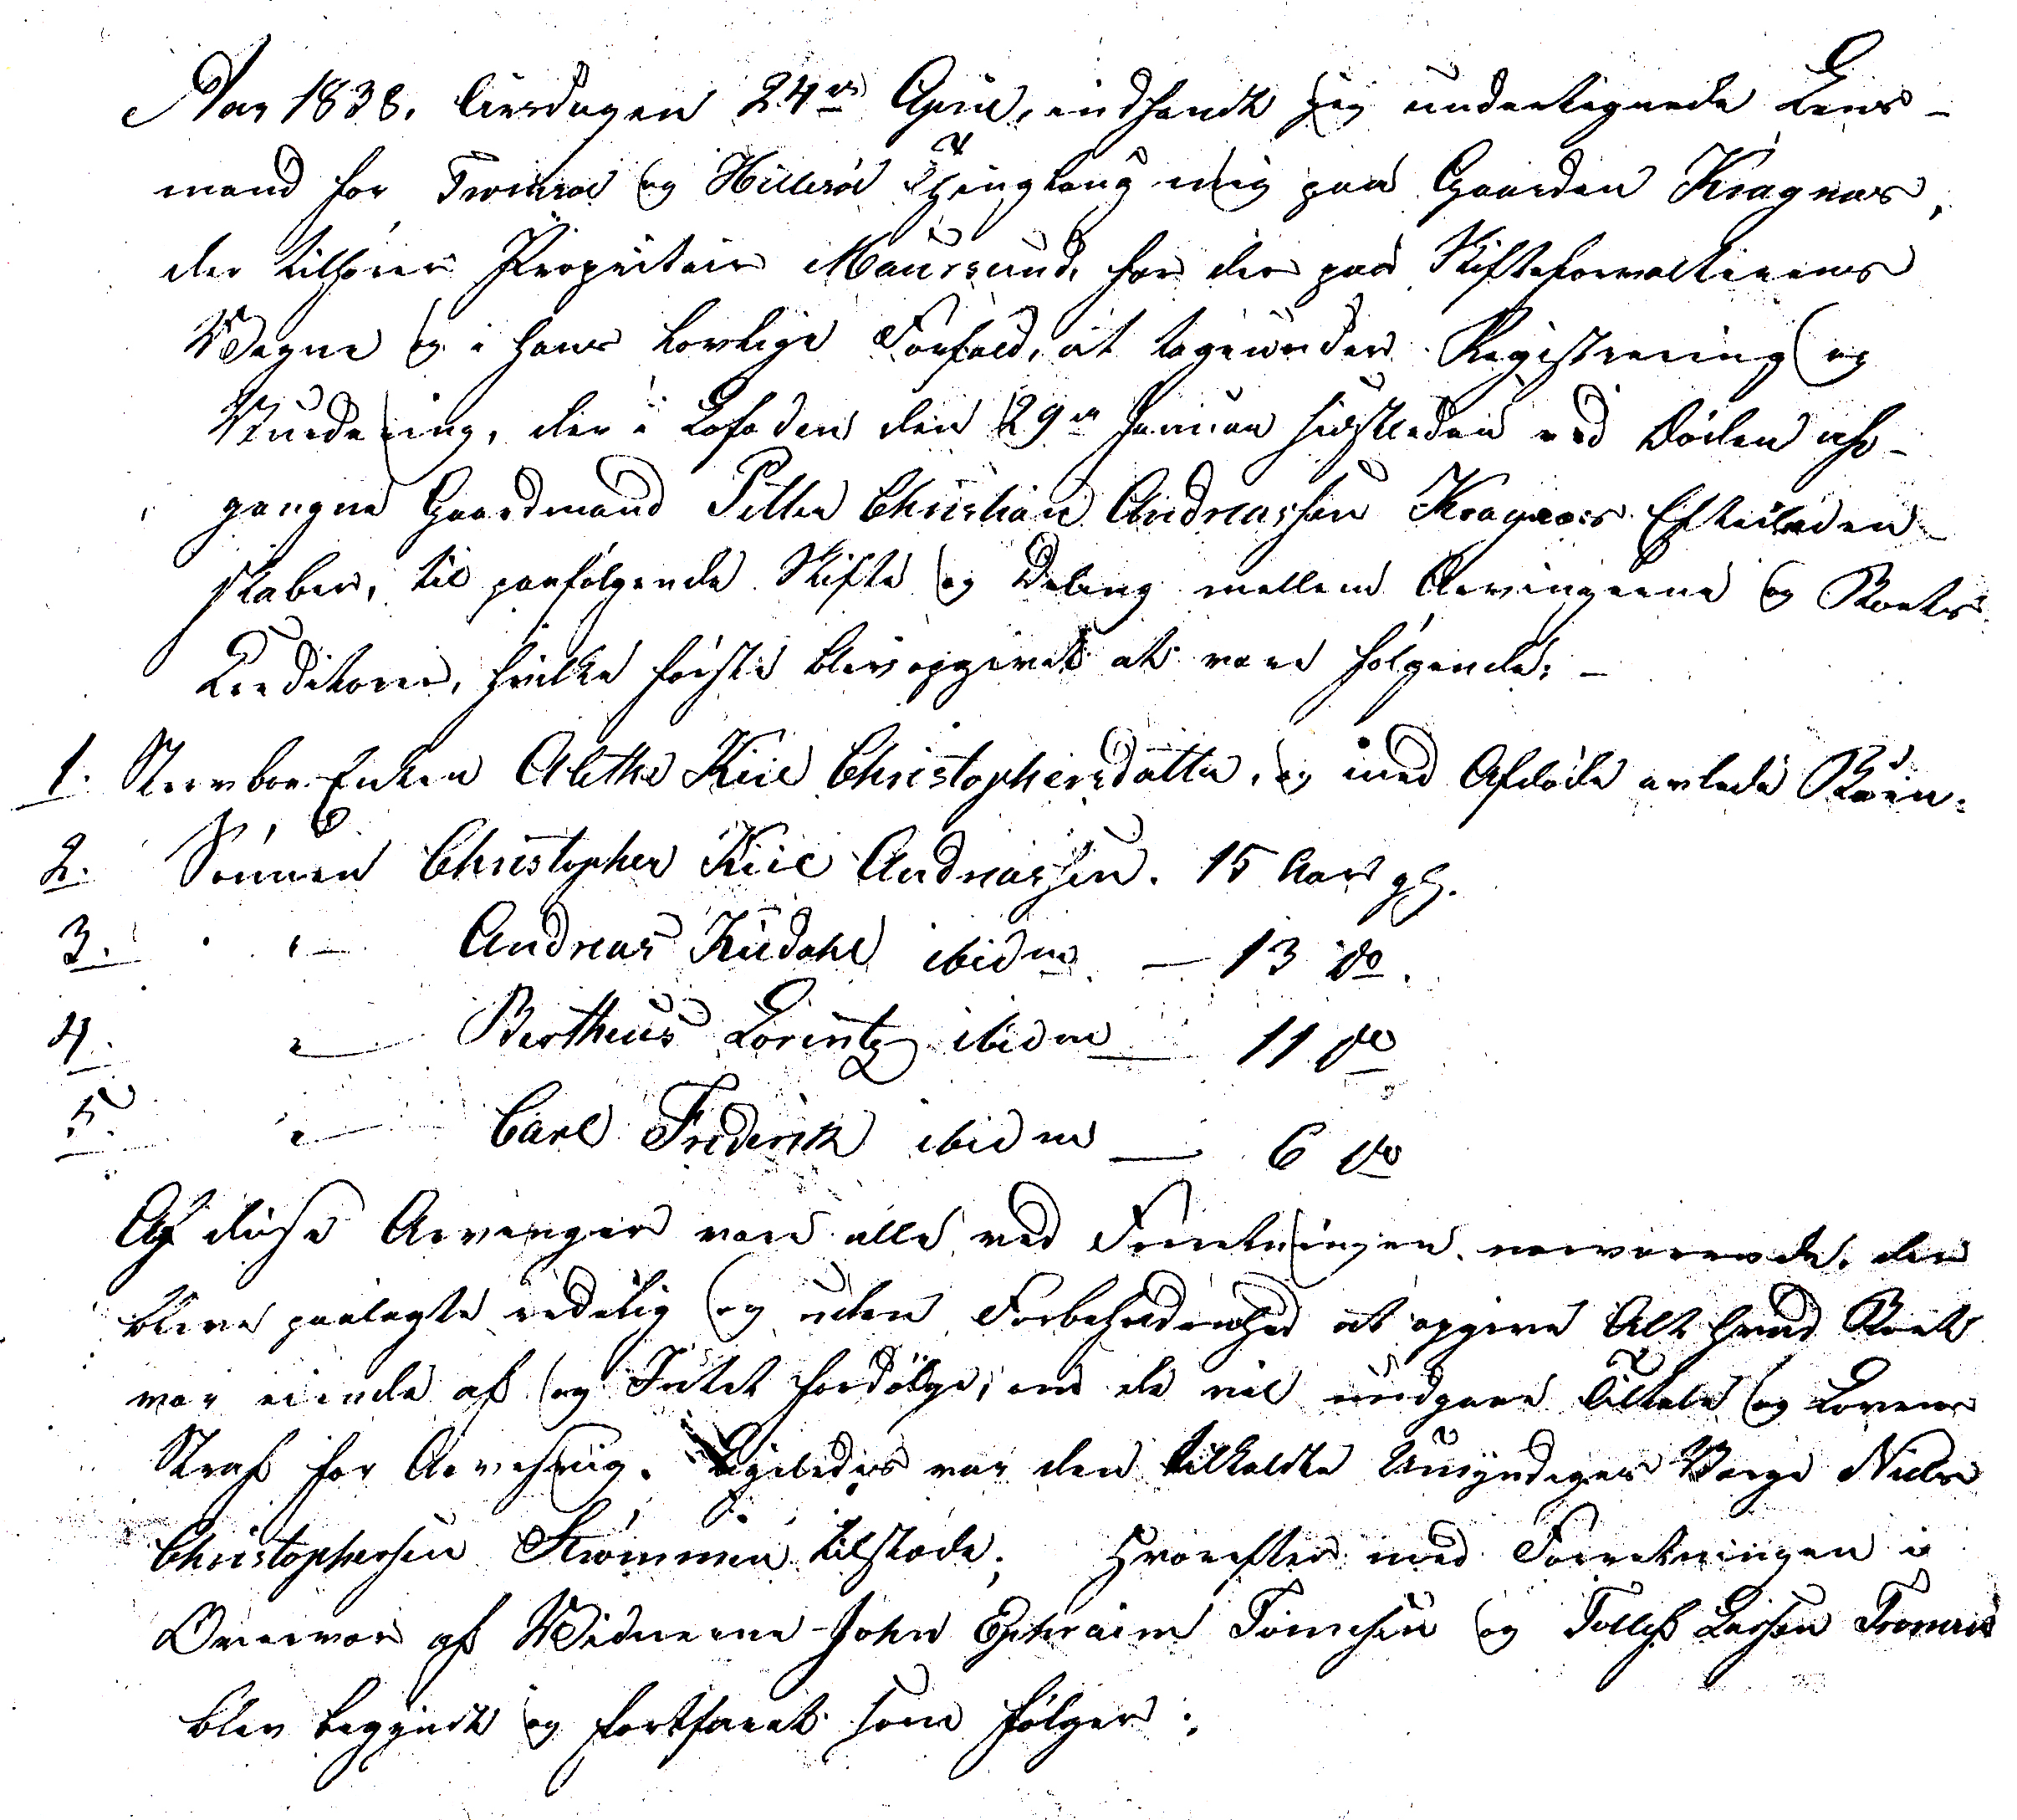 Aar 1838, Tirsdagen 24de April, indfandt jeg undertegnede Lens-
mand for Tromsøe og Hillesøe Thinglaug mig paa Gaarden Kragnæs,
der tilhører Propritair Maursund, for der paa Skifteforvalterens
Vegne og i hans lovlige Forfald, at tage under Registrering og
Vurdering, der i Lofoden den 29de Januar sidstleden ved Døden af-
gangne Gaardmand Petter Christian Andreassen Kragnæs Efterladen-
skaber, til paafølgende Skifte og Deling mellem Arvingerne og Boets
Creditorer, hvilke første blev opgivet at være følgende: -
1. Stervboe Enken Alethe Kiil Christophersdatter, og med Afdøde avlede Børn:
2. Sønnen Christopher Kiil Andreassen. 15 Aar gl.
3. " - Andreas Kildahl ibidm - 13 do.
4. " - Bertheus Lorentz ibidm - 11 do
5. " - Carl Frederik ibidm - 6 do
Af disse Arvinger vare alle ved Forretningen nærværende, der
bleve paalagte redelig og uden Forbeholdenhed at opgive Alt hvad Boet
var eiende af og Intet fordølge, om de vil undgaae Tiltale og Lovens
Straf for Arvesvig. Ligeledes var den tilkaldte Umyndiges Værge Niels
Christophersen Strømmen tilstæde; Hvorefter med Forretningen i
Overvær af Vidnerne John Ephraim Tønnesen og Tollef Larsen Tromsøe
blev begyndt og fortfaret som følger: